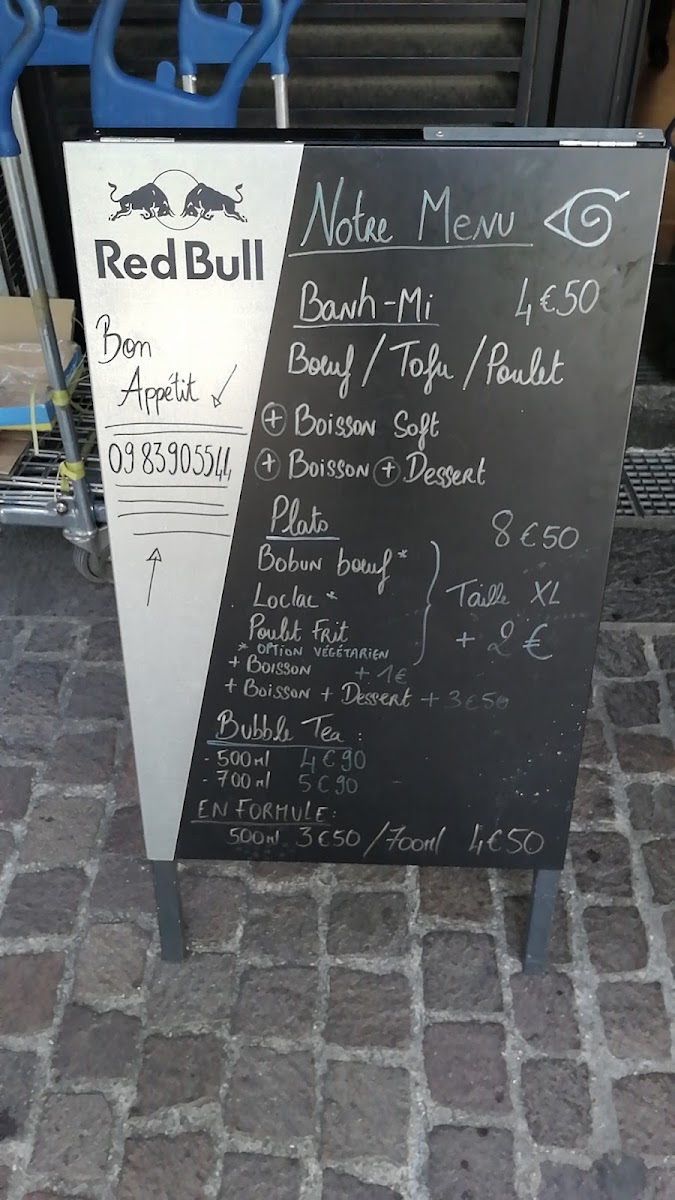 Red Bull
Bon
Appétit
09 83905544
Notre Menu
Banh-Mi 4€50
Bœuf / Tofu / Poulet
+ Boisson Soft
+ Boisson + Dessert
Plats 8€50
Bobun bœuf*
Loclac *
Poulet Frit
Taille XL
+ 2€
* OPTION VÉGÉTARIEN
+ Boisson + 1€
+ Boisson + Dessert + 3€50
Bubble Tea :
- 500ml 4€90
- 700ml 5€90
EN FORMULE:
500ml 3€50 / 700ml 4€50